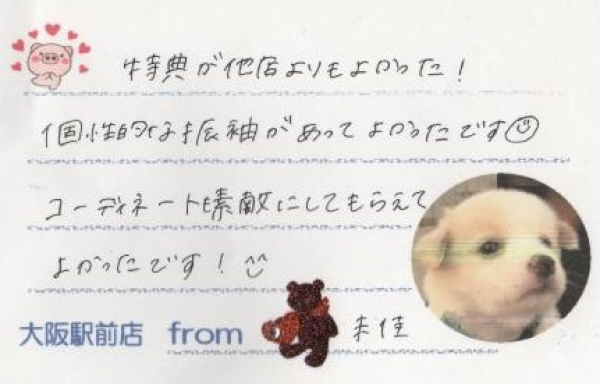 特典が他店よりもよかった！
個性的な振袖があってよかったです
コーディネートも素敵にしてもらえて
よかったです！
大阪駅前店 from 未佳